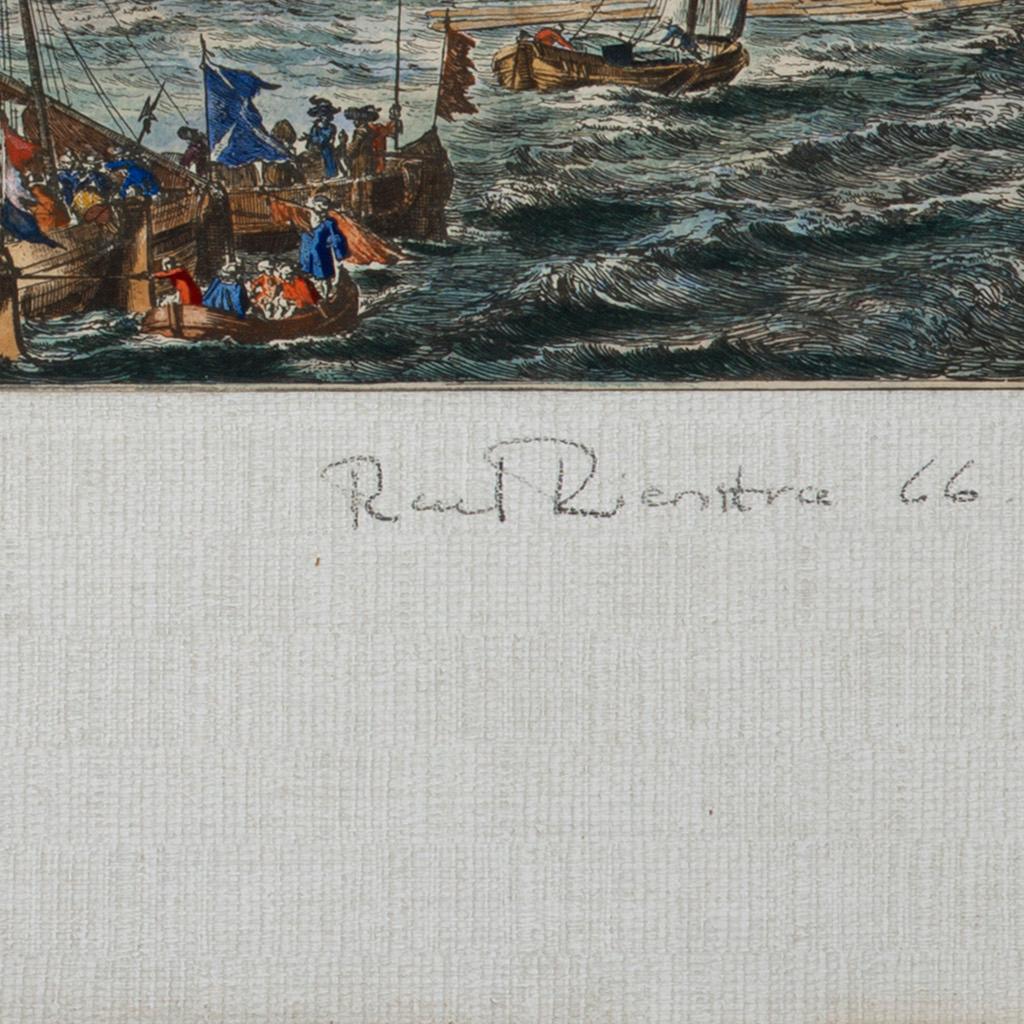 Raul Rienstra 66